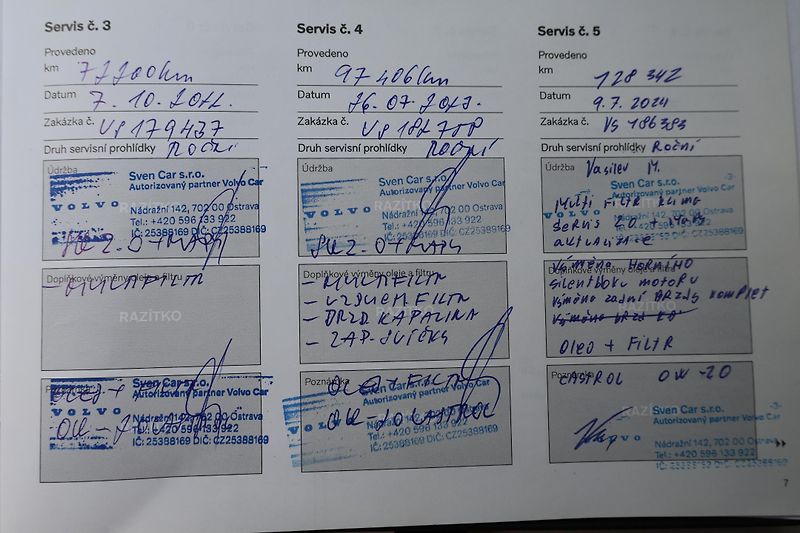 Servis č. 3
Provedeno
km
Datum 7. 10. 2022.
Zakázka č. VS 179437
Druh servisní prohlídky Roční
Údržba
Sven Car s.r.o.
Autorizovaný partner Volvo Car
VOLVO
RAZÍTKO
Nádražní 142, 702 00 Ostrava
Tel.: +420 596 133 922
IČ: 25388169 DIČ: CZ25388169
Doplňkové výměny oleje a filtru
- MULTIFILTR
RAZÍTKO
Poznámka
Sven Car s.r.o.
Autorizovaný partner Volvo Car
VOLVO
Nádražní 142, 702 00 Ostrava
Tel.: +420 596 133 922
IČ: 25388169 DIČ: CZ25388169
Servis č. 4
Provedeno
km 97 406 km
Datum 26. 07. 2023.
Zakázka č.
Druh servisní prohlídky Roční
Údržba
Sven Car s.r.o.
Autorizovaný partner Volvo Car
VOLVO
RAZÍTKO
Nádražní 142, 702 00 Ostrava
Tel.: +420 596 133 922
IČ: 25388169 DIČ: CZ25388169
Doplňkové výměny oleje a filtru
- MULTIFILTR
- VZDUCH FILTR
- BRZD KAPALINA
- ZAP. SVÍČKY
RAZÍTKO
Poznámka
OLEJ + FILTR
Sven Car s.r.o.
Autorizovaný partner Volvo Car
VOLVO
CASTROL
Nádražní 142, 702 00 Ostrava
Tel.: +420 596 133 922
IČ: 25388169 DIČ: CZ25388169
Servis č. 5
Provedeno
km 128 342
Datum 9. 7. 2024
Zakázka č. VS 186383
Druh servisní prohlídky Roční
Údržba Vasilev M.
-3-
Sven Car s.r.o.
Autorizovaný partner Volvo Car
MULTI FILTR klima
VOLVO
RAZÍTKO
Nádražní 142, 702 00 Ostrava
servis 2.0
Tel.: +420 596 133 922
IČ: 25388169 DIČ: CZ25388169
Doplňkové výměny oleje a filtru
výměna HORNÍHO
silentbloku motoru
výměna zadní BRZDY komplet
RAZÍTKO
OLEJ + FILTR
Poznámka
CASTROL 0W-20
-3-
Sven Car s.r.o.
Autorizovaný partner Volvo Car
Nádražní 142, 702 00 Ostrava
Tel.: +420 596 133 922
IČ: 25388169 DIČ: CZ25388169
7